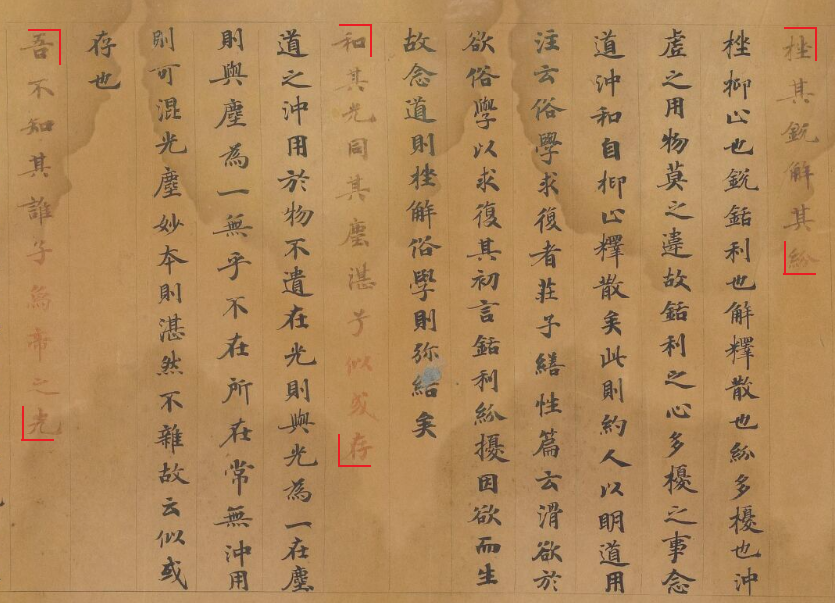 挫其銳解其紛
挫抑止也銳銛利也解釋散也紛多擾也沖
虛之用物莫之違故銛利之心多擾之事念
道沖和自抑止釋散矣此則約人以明道用
注云俗學求復者莊子繕性篇云滑欲於
欲俗學以求復其初言銛利紛擾因欲而生
故念道則挫解俗學則弥結矣
和其光同其塵湛兮似或存
道之沖用於物不遺在光則與光為一在塵
則與塵為一無乎不在所在常無沖用
則可混光塵妙本則湛然不雜故云似或
存也
吾不知其誰子為帝之先